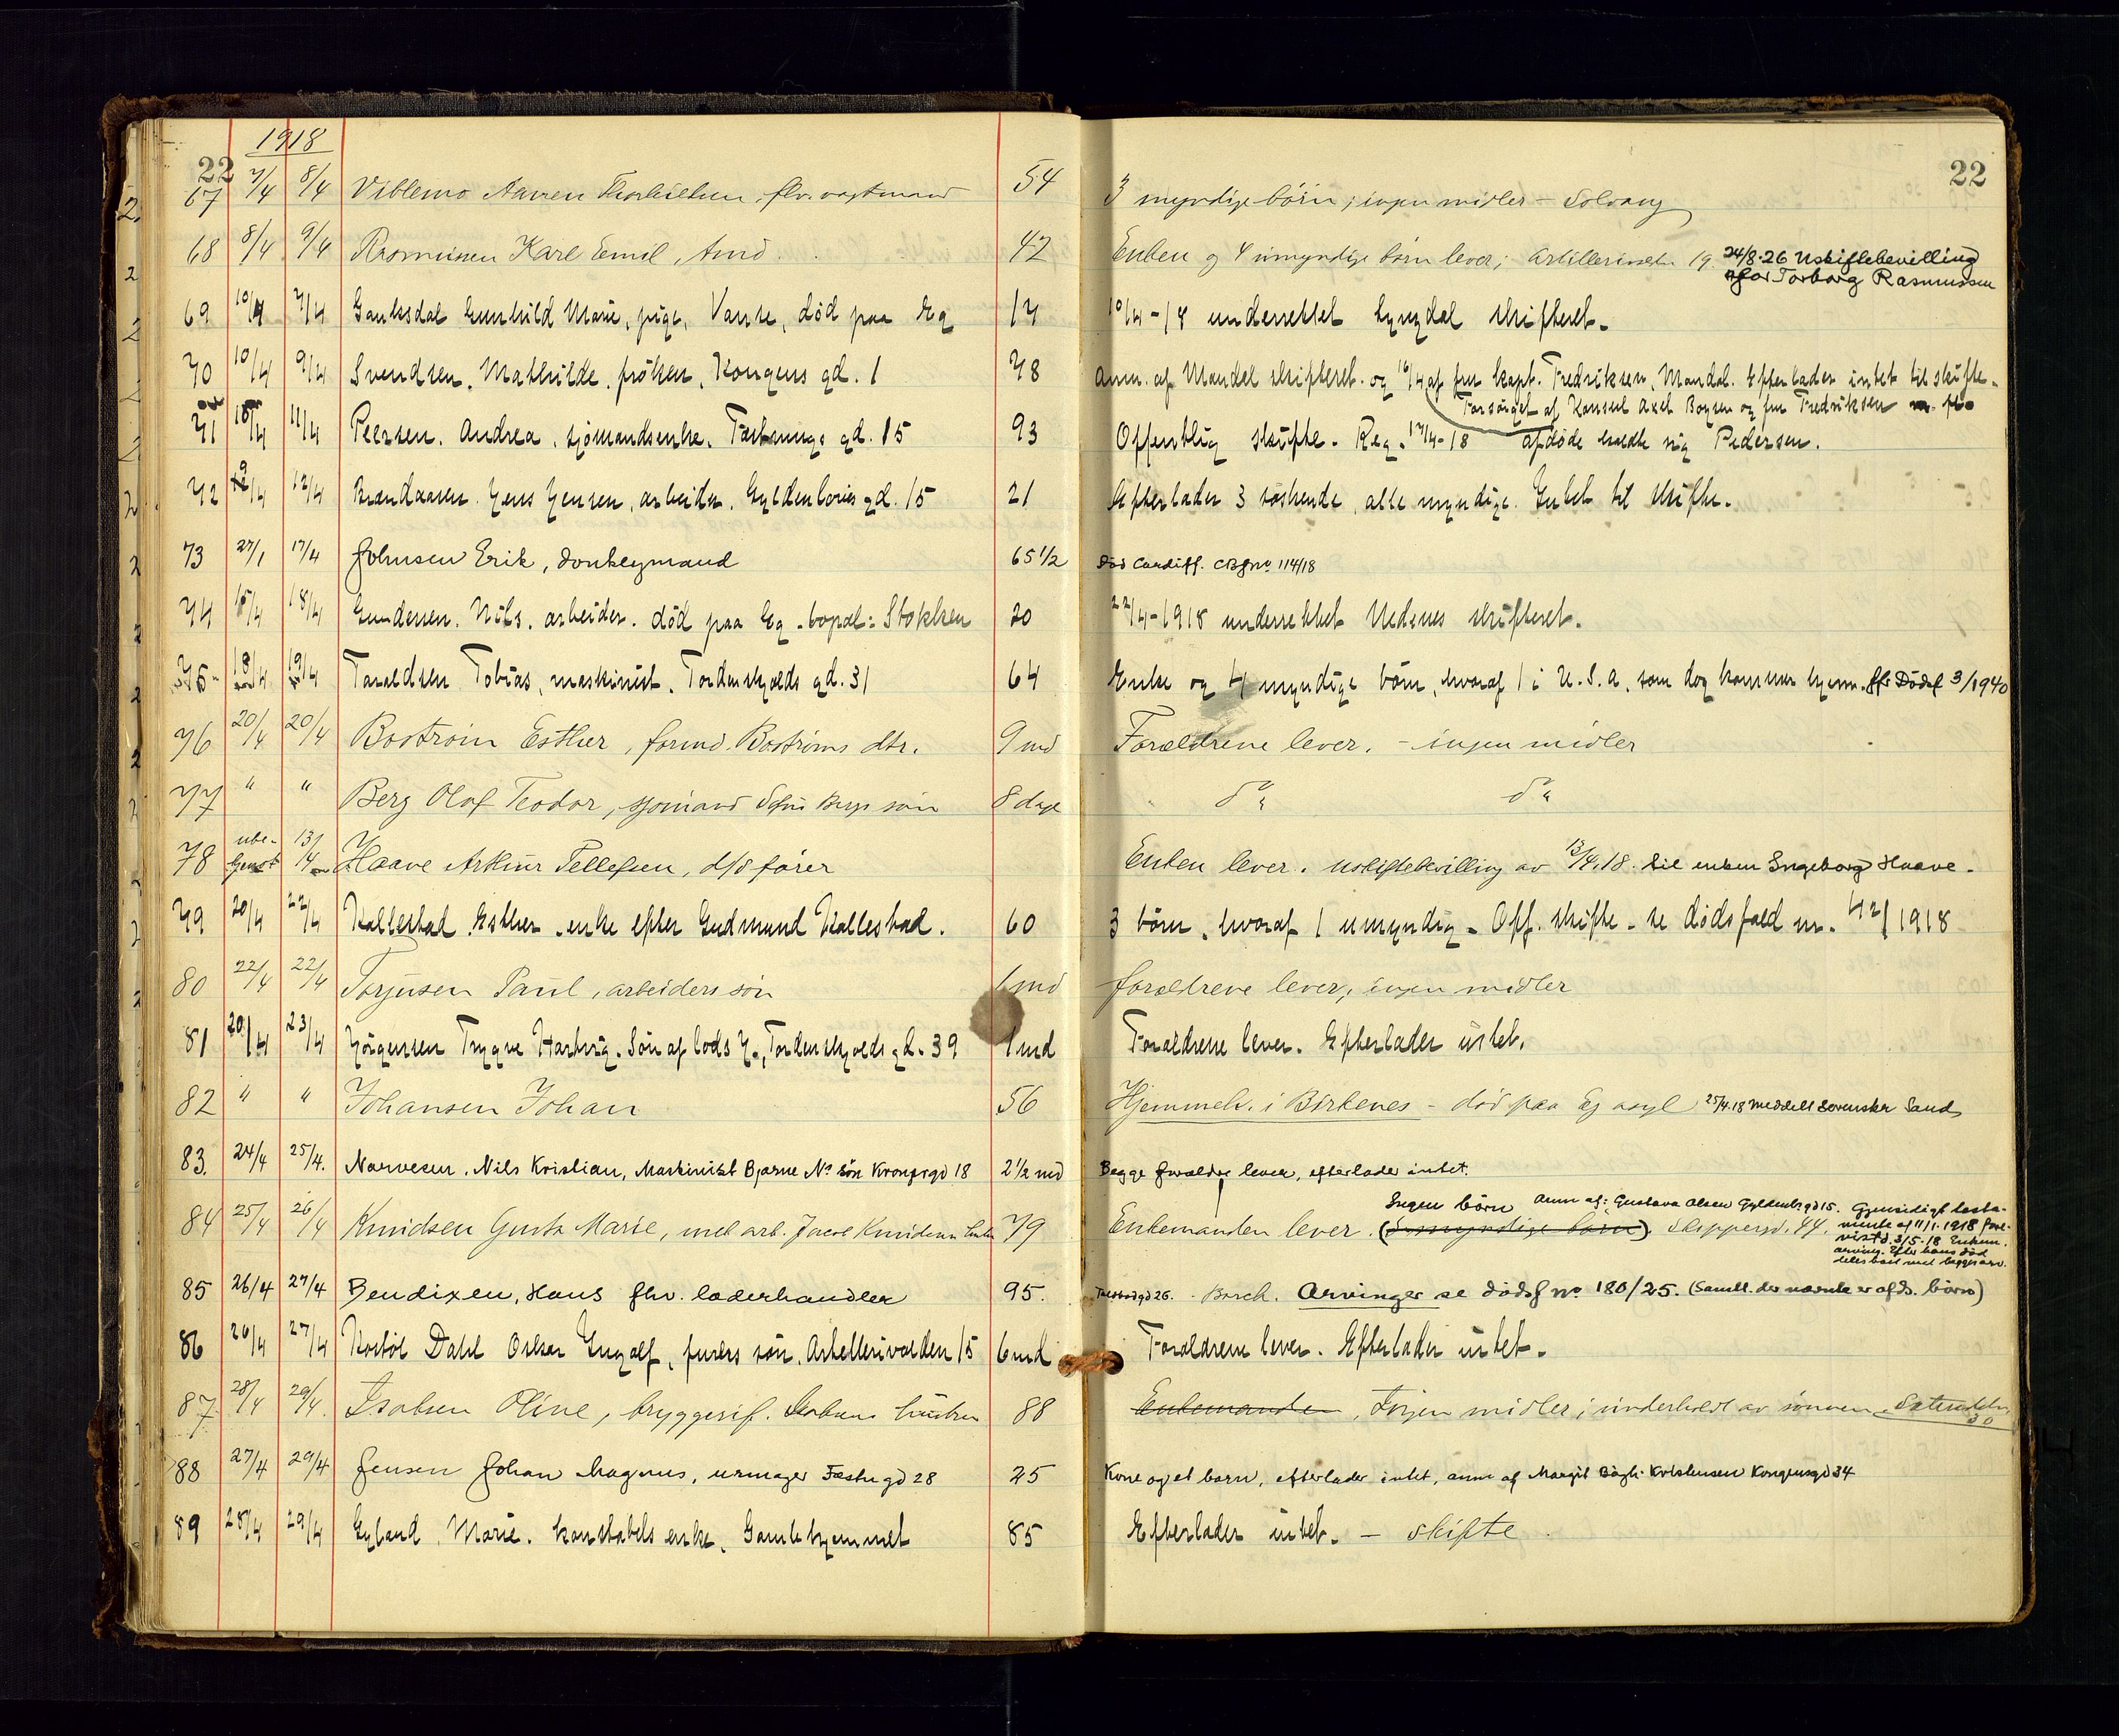 1918
22
22
67 7/4 8/4 Viblemo Aanen Thorkildsen, fhv. vagtmand 54 3 myndige börn; ingen midler - Solvang
68 8/4 9/4 Rasmussen Karl Emil, 42 Enken og 4 umyndige börn lever; Artillerivold. 19. 24/8-26 Uskiftebevilling
for Torborg Rasmussen
69 10/4 7/4 Gunhild Marie, pige, Vanse, död paa Eg 14 10/4-18 underrettet Lyngdal skifteret.
70 10/4 9/4 Svendsen, Mathilde, fröken, Kongens gd. 1 78 Anm. af Mandal skifteret. og 16/4 af fru kapt. Fredriksen, Mandal. Efterlader intet til skifte.
Forsörget af Konsul Axel Boysen og fru Fredriksen
71 10/4 11/4 Peersen, Andrea, sjömandsenke, Fæstnings gd. 15 93 Offentlig skifte. Reg. 17/4-18 afdöde kaldte sig Pedersen.
72 9/4 12/4 Brændaasen, Jens Jensen, arbeider, Gyldenlöves gd. 15 21 Efterlader 3 söskende, alle myndige. Intet til skifte.
73 27/1 17/4 Johnsen Erik, donkeymand 65 1/2 död Cardiff. no 114/18
74 15/4 18/4 Gundersen, Nils, arbeider, död paa Eg. bopæl: Stokken 20 22/4-1918 underrettet Nedenes skifteret.
75 18/4 19/4 Taraldsen Tobias, maskinist, Tordenskjolds gd. 31 64 Enke og 4 myndige börn, hvoraf 1 i U.S.A. som dog kommer hjem. Dödsf 3/1940
76 20/4 20/4 Boström Esther, formd. Boströms dtr. 9 md Forældrene lever. - ingen midler
77 " " Berg Olaf Teodor, sjömand Bergs sön 8 dage do do
78 ube-
kjendt 13/4 Haave Arthur Tellefsen, d/s förer Enken lever. Uskiftebevilling av 13/4.18 til enken Ingeborg Haave.
79 20/4 22/4 Kallestad Esther, enke efter Gudmund Kallestad. 60 3 börn, hvoraf 1 umyndig. Off. skifte. se dödsfald nr. 42/1918
80 22/4 22/4 Torjusen Paul, arbeiders sön 1 md forældrene lever; ingen midler
81 20/4 23/4 Jörgensen Trygve Hartvig. Sön af lods J., Tordenskjolds gd. 39 1 md Forældrene lever. Efterlader intet.
82 " " Johansen Johan 56 Hjemmeh. i Birkenes - död paa Eg asyl 25/4.18 meddelt Sorenskr Sand
83. 24/4 25/4. Narvesen, Nils Kristian, Maskinist Bjarne Ns sön Kronprgd 18 2 1/2 md Begge forældre lever, efterlader intet.
84 25/4 26/4 Knudsen Gusta Marie, med arb. Jacob Knudsen 79 Enkemanden lever. (3 myndige börn). Ingen börn Skippergd. 44. Anm af: Gustava Olsen Gyldenlgd 15. Gjensidigt testa-
mente af 11/1-1918 fore-
vist d. 3/5-18 Enkem.
arving. Efter hans död
deles boet mel begges arv.
85 26/4 27/4 Bendixen, Hans fhv. læderhandler 95. Arvinger se dödsf no 180/25. (Samtl. der nævnte er afds. börn)
86 26/4 27/4 Dahl Oskar Ingolf, furers sön, Artillerivolden 15 6 md Forældrene lever. Efterlader intet.
87 28/4 29/4. Isaksen Oline, bryggerif. Isaksens hustru 88 Enkemanden, Ingen midler; underholdt av sönnen.
30
88 27/4 29/4 Jensen Johan Magnus, urmager Fæstn gd 28 25 Kone og et barn, efterlader intet, anm af Margit Kristensen Kongensgd 34
89 28/4 29/4 Gyland, Marie, konstabels enke, Gamlehjemmet 85 Efterlader intet. - skifte